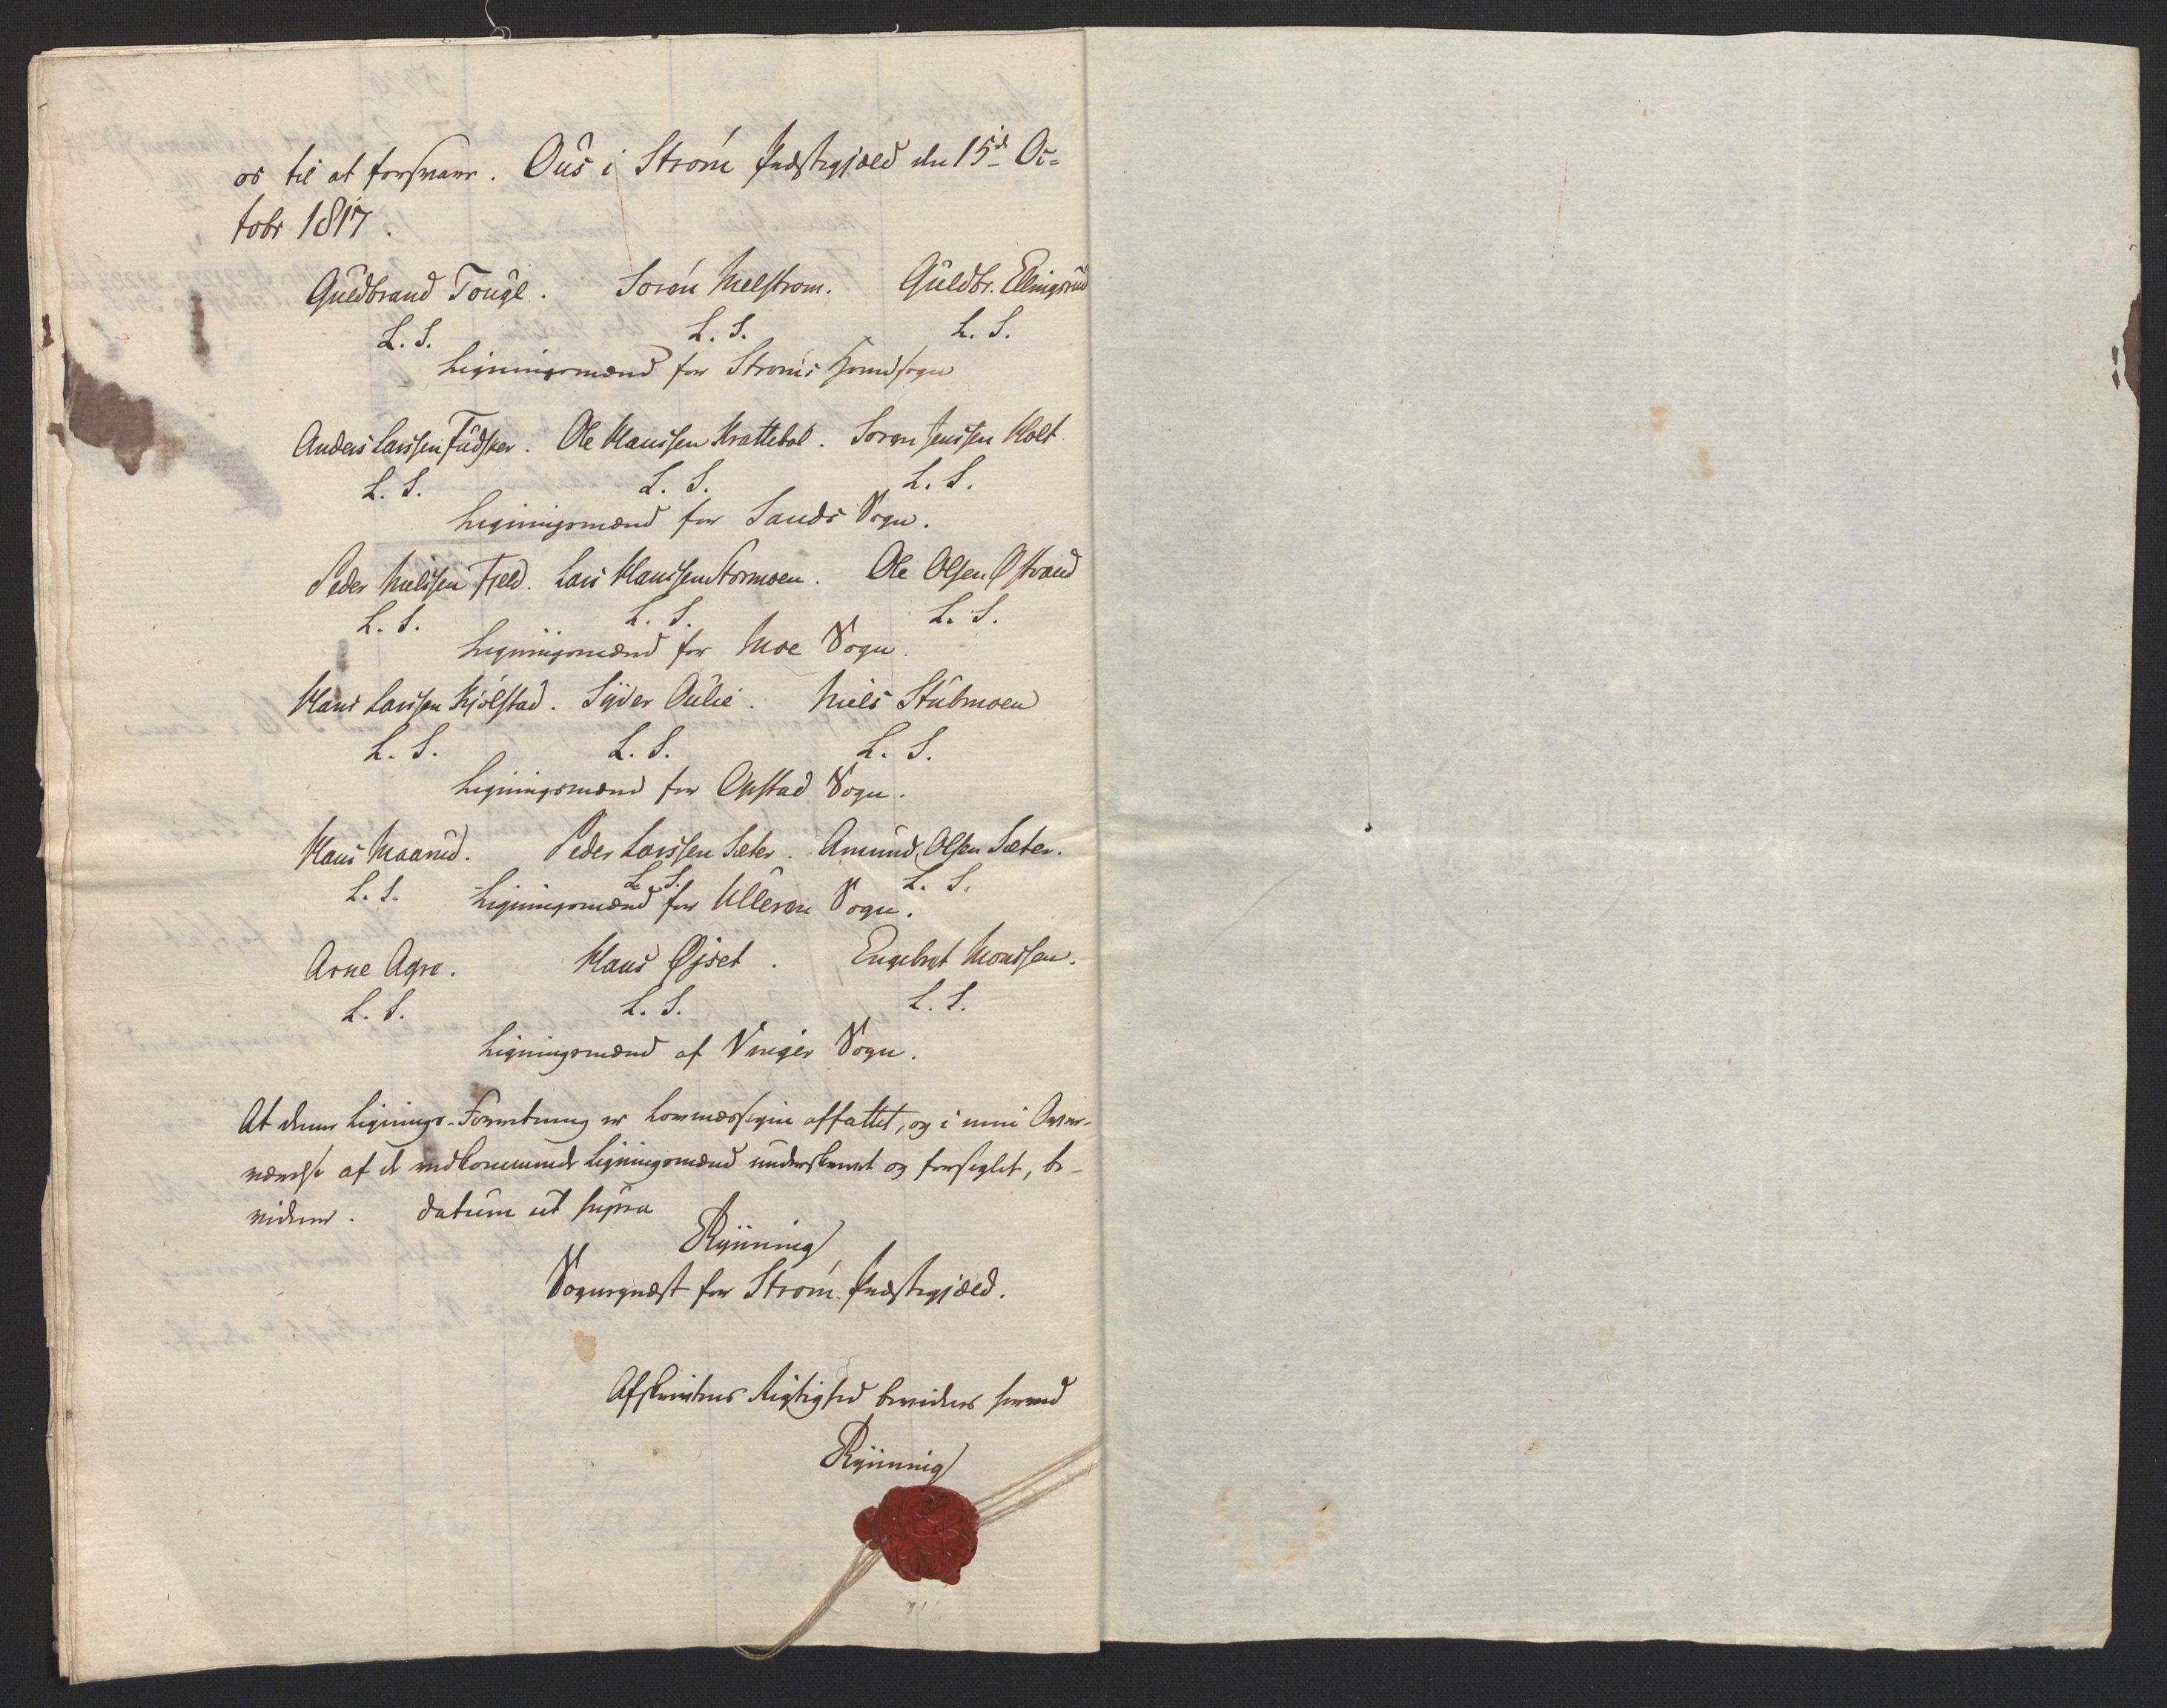 os til at forsvare. Ous i Strøm Præstegjæld den 15d Oc-
tobr 1817.
Guldbrand Tougl. Søren Melstrøm. Guldbr. Ellingsrud
L. S. L. S. L. S.
Ligningsmænd for Strøms Hovedsogn
Anders Larssen Fudsker. Ole Hanssen Krattebøl. Søren Jenssen Holt
L. S. L. S. L. S.
Ligningsmænd for Sands Sogn.
Peder Nielssen Fjeld. Lars Hanssen Stormoen. Ole Olsen Østrand
L. S. L. S. L. S.
Ligningsmænd for Moe Sogn.
Hans Larssen Kjølstad. Syver Aulie. Niels Stubmoen
L. S. L. S. L. S.
Ligningsmænd for Opstad Sogn.
Hans Maarud. Peder Larssen Sæter. Amund Olsen Sæter.
L. S. L. S. L. S.
Ligningsmænd for Ulleren Sogn.
Arne Agre. Hans Øjset. Engebret Monssen.
L. S. L. S. L. S.
Ligningsmænd af Vinger Sogn.
At denne Lignings-Forretning er lovmæssigen affattet, og i min Overvær-
værelse af de vedkommende Ligningsmænd underskrevet og forseglet, be-
vidnes. datum ut supra
Rynning
Sognepræst for Strøm Præstegjæld.
Afskriftens Rigtighed bevidnes herved
Rynning